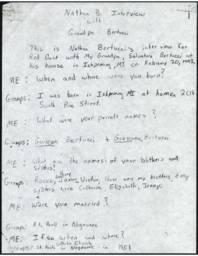 Nathan B. Interview
with
Grandpa Bertucci
This is Nathan Bertucci's interview for
Red Dust with My Grandpa, Salvatore Bertucci at
his house in Ishpeming, MI on February 20,
ME: When and where were you born?
Gramps: I was born in Ishpeming MI at home 209
South Pine Street.
ME: What were your parents names?
Gramps: Bertucci + Bertucci
ME: What are the names of your brothers and
sisters?
Gramps: James, Victor, are my brothers, & my
sisters were Catherine, Elizabeth, Jenny.
ME: Were you married?
Gramps: St. Pauls in Negaunee
ME: If so when and where?
Gramps: St. Pauls in Negaunee in 1951